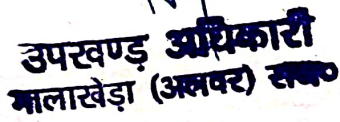 उपखण्ड़ अधिकारी
मालाखेड़ा (अलवर) राज०